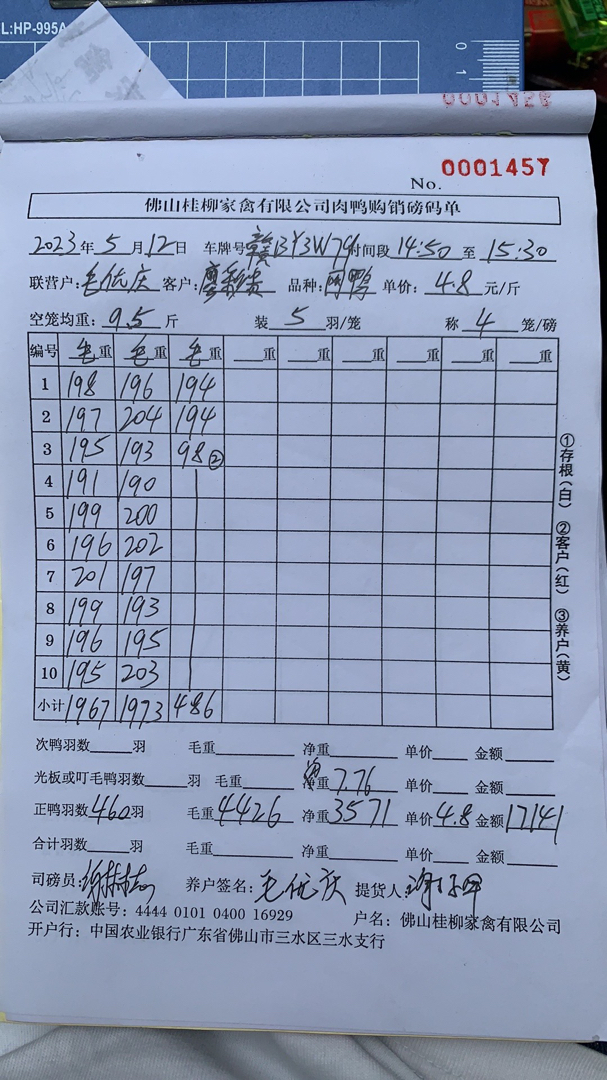 L:HP-995A
0 1
0001458
No. 0001457
佛山桂柳家禽有限公司肉鸭购销磅码单
2023年5月12日 车牌号赣BY3W79时间段14:50至15:30
联营户:毛优庆 客户: 品种: 鸭 单价:4.8元/斤
空笼均重:9.5斤 装5羽/笼 称4笼/磅
编号 毛重 毛重 毛重 重 重 重 重 重 重
1 198 196 194
2 197 204 194
3 195 193 98②
4 191 190
5 199 200
6 196 202
7 201 197
8 199 193
9 196 195
10 195 203
小计 1967 1973 486
①存根(白) ②客户(红) ③养户(黄)
次鸭羽数 羽 毛重 净重 单价 金额
光板或叮毛鸭羽数 羽 毛重 净重 7.76 单价 金额
正鸭羽数460羽 毛重4426 净重3571 单价4.8 金额17141
合计羽数 羽 毛重 净重 单价 金额
司磅员: 养户签名:毛优庆 提货人:
公司汇款账号:4444 0101 0400 16929 户名:佛山桂柳家禽有限公司
开户行:中国农业银行广东省佛山市三水区三水支行